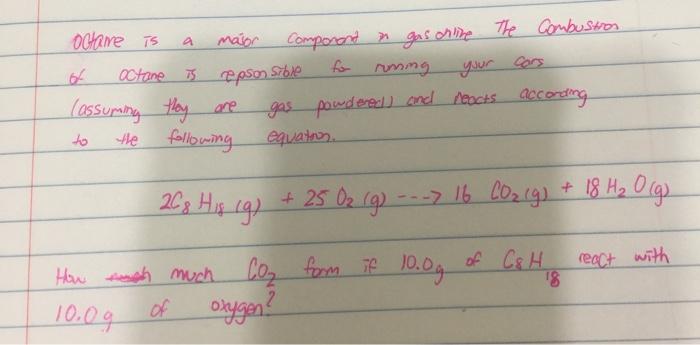 octane is a major component in gasonline The Combustion
of octane is repsonsible for running your cars
(assuming they are gas powdered) and reacts according
to the following equation.
2C8 H18 (g) + 25 O2 (g) ---> 16 CO2 (g) + 18 H2 O (g)
How much CO2 form if 10.0g of C8H18 react with
10.0g of oxygen?